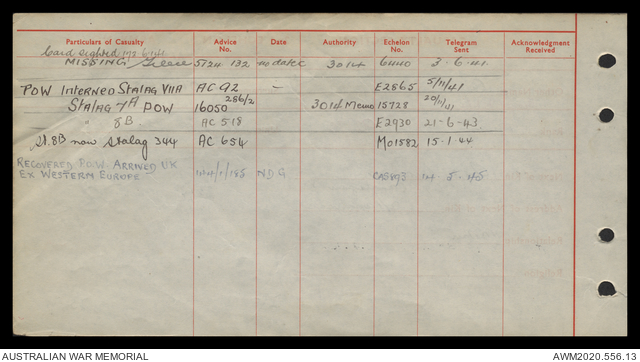 Particulars of Casualty Advice No. Date Authority Echelon No. Telegram Sent Acknowledgment Received
Card sighted
MISSING Greece 5724 132 no date 30 6440 3·6·41
POW INTERNED STALAG VIIA AC 92 – E2865 5/11/41
STALAG 7A POW 16050 286/2 301d Memo 15728 20/11/41
" 8B AC 518 E2930 21-6-43
St. 8B now Stalag 344 AC 654 M01582 15·1·44
RECOVERED P.O.W. ARRIVED UK NDG 14·5·45
EX WESTERN EUROPE
AUSTRALIAN WAR MEMORIAL
AWM2020.556.13